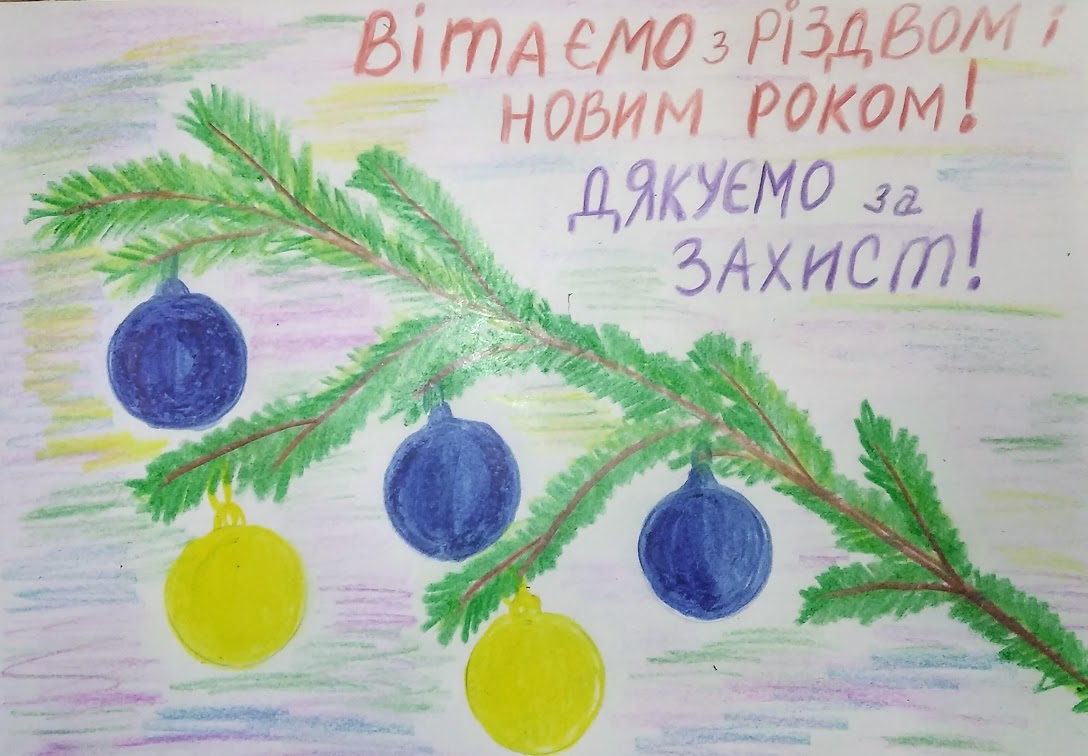 Вітаємо з Різдвом і
новим роком!
Дякуємо за
захист!